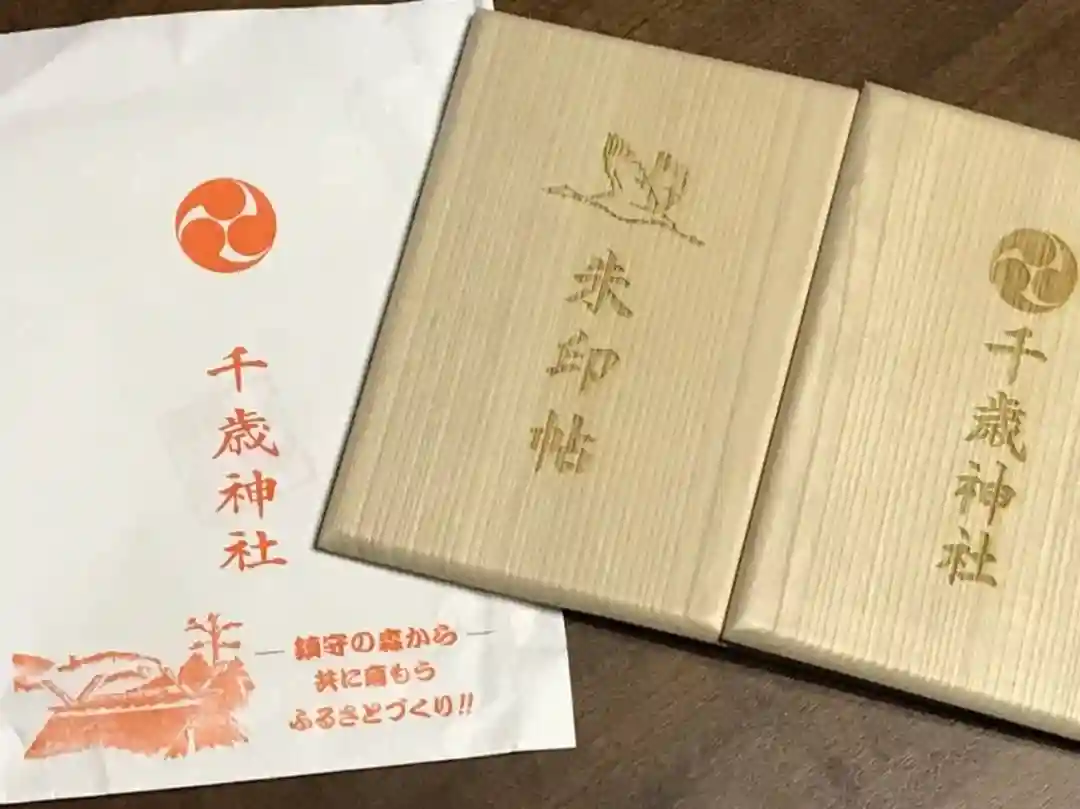 千歳神社
鎮守の森から
共に育もう
ふるさとづくり!!
朱印帖
千歳神社